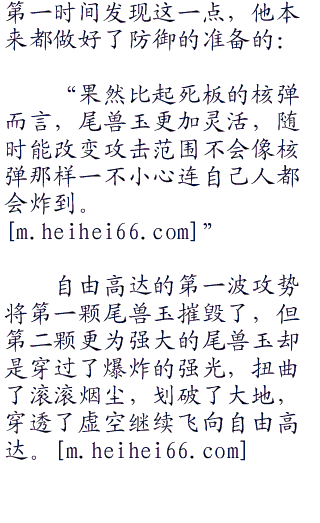 第一时间发现这一点，他本
来都做好了防御的准备的：
“果然比起死板的核弹
而言，尾兽玉更加灵活，随
时能改变攻击范围不会像核
弹那样一不小心连自己人都
会炸到。
[m.heihei66.com]”
自由高达的第一波攻势
将第一颗尾兽玉摧毁了，但
第二颗更为强大的尾兽玉却
是穿过了爆炸的强光，扭曲
了滚滚烟尘，划破了大地，
穿透了虚空继续飞向自由高
达。[m.heihei66.com]